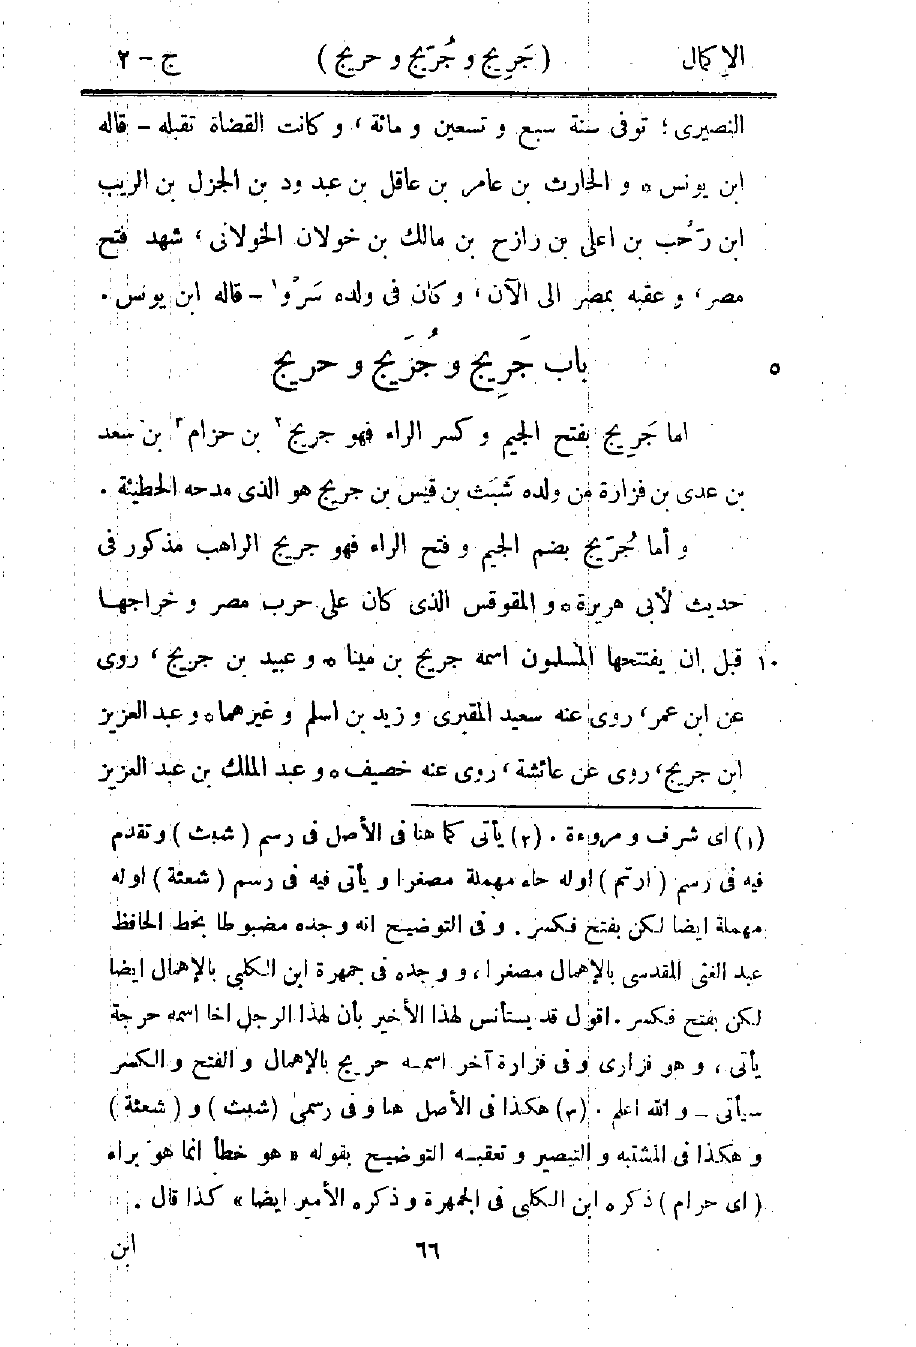 الإكمال (جَرِيج و جُرَيج و حريج) ج - ٢
النصيرى؛ توفى سنة سبع و تسعين و مائة، و كانت القضاة تقبله - قاله
ابن يونس ٥ و الحارث بن عامر بن عاقل بن عبد ود بن الجزل بن الريب
ابن رَحُب بن اعلى بن رازح بن مالك بن خولان الخولانى، شهد فتح
مصر، و عقبه بمصر الى الآن، و كان فى ولده سَرْو¹ - قاله ابن يونس.
باب جَرِيج و جُرَيج و حريج ٥
اما جَرِيج بفتح الجيم و كسر الراء فهو جريج² بن حزام³ بن سعد
بن عدى بن فزارة من ولده شَبَث بن قيس بن جريج هو الذى مدحه الحطيئة.
و أما جُرَيج بضم الجيم و فتح الراء فهو جريج الراهب مذكور فى
حديث لأبى هريرة ٥ و المقوقس الذى كان على حرب مصر و خراجها
١٠ قبل ان يفتتحها المسلمون اسمه جريج بن مينا ٥ و عبيد بن جريج، روى
عن ابن عمر، روى عنه سعيد المقبرى و زيد بن اسلم و غيرهما ٥ و عبد العزيز
ابن جريج، روى عن عائشة، روى عنه خصيف ٥ و عبد الملك بن عبد العزيز
(١) اى شرف و مروءة. (٢) يأتى كما هنا فى الأصل فى رسم (شبث) و تقدم
فيه فى رسم (ارتم) اوله حاء مهملة مصغرا و يأتى فيه فى رسم (شعثة) اوله
مهملة ايضا لكن بفتح فكسر. و فى التوضيح انه وجده مضبوطا بخط الحافظ
عبد الغنى المقدسى بالإهمال مصغرا، و وجده فى جمهرة ابن الكلبى بالإهمال ايضا
لكن بفتح فكسر. اقول قد يستأنس لهذا الأخير بأن لهذا الرجل اخا اسمه حرجة
يأتى، و هو فزارى و فى فزارة آخر اسمه حريج بالإهمال و الفتح و الكسر
سيأتى - و الله اعلم. (٣) هكذا فى الأصل هنا و فى رسمى (شبث) و (شعثة)
و هكذا فى المشتبه و التبصير و تعقبه التوضيح بقوله « هو خطأ انما هو براء
(اى حرام) ذكره ابن الكلبى فى الجمهرة و ذكره الأمير ايضا » كذا قال.
٦٦ ابن